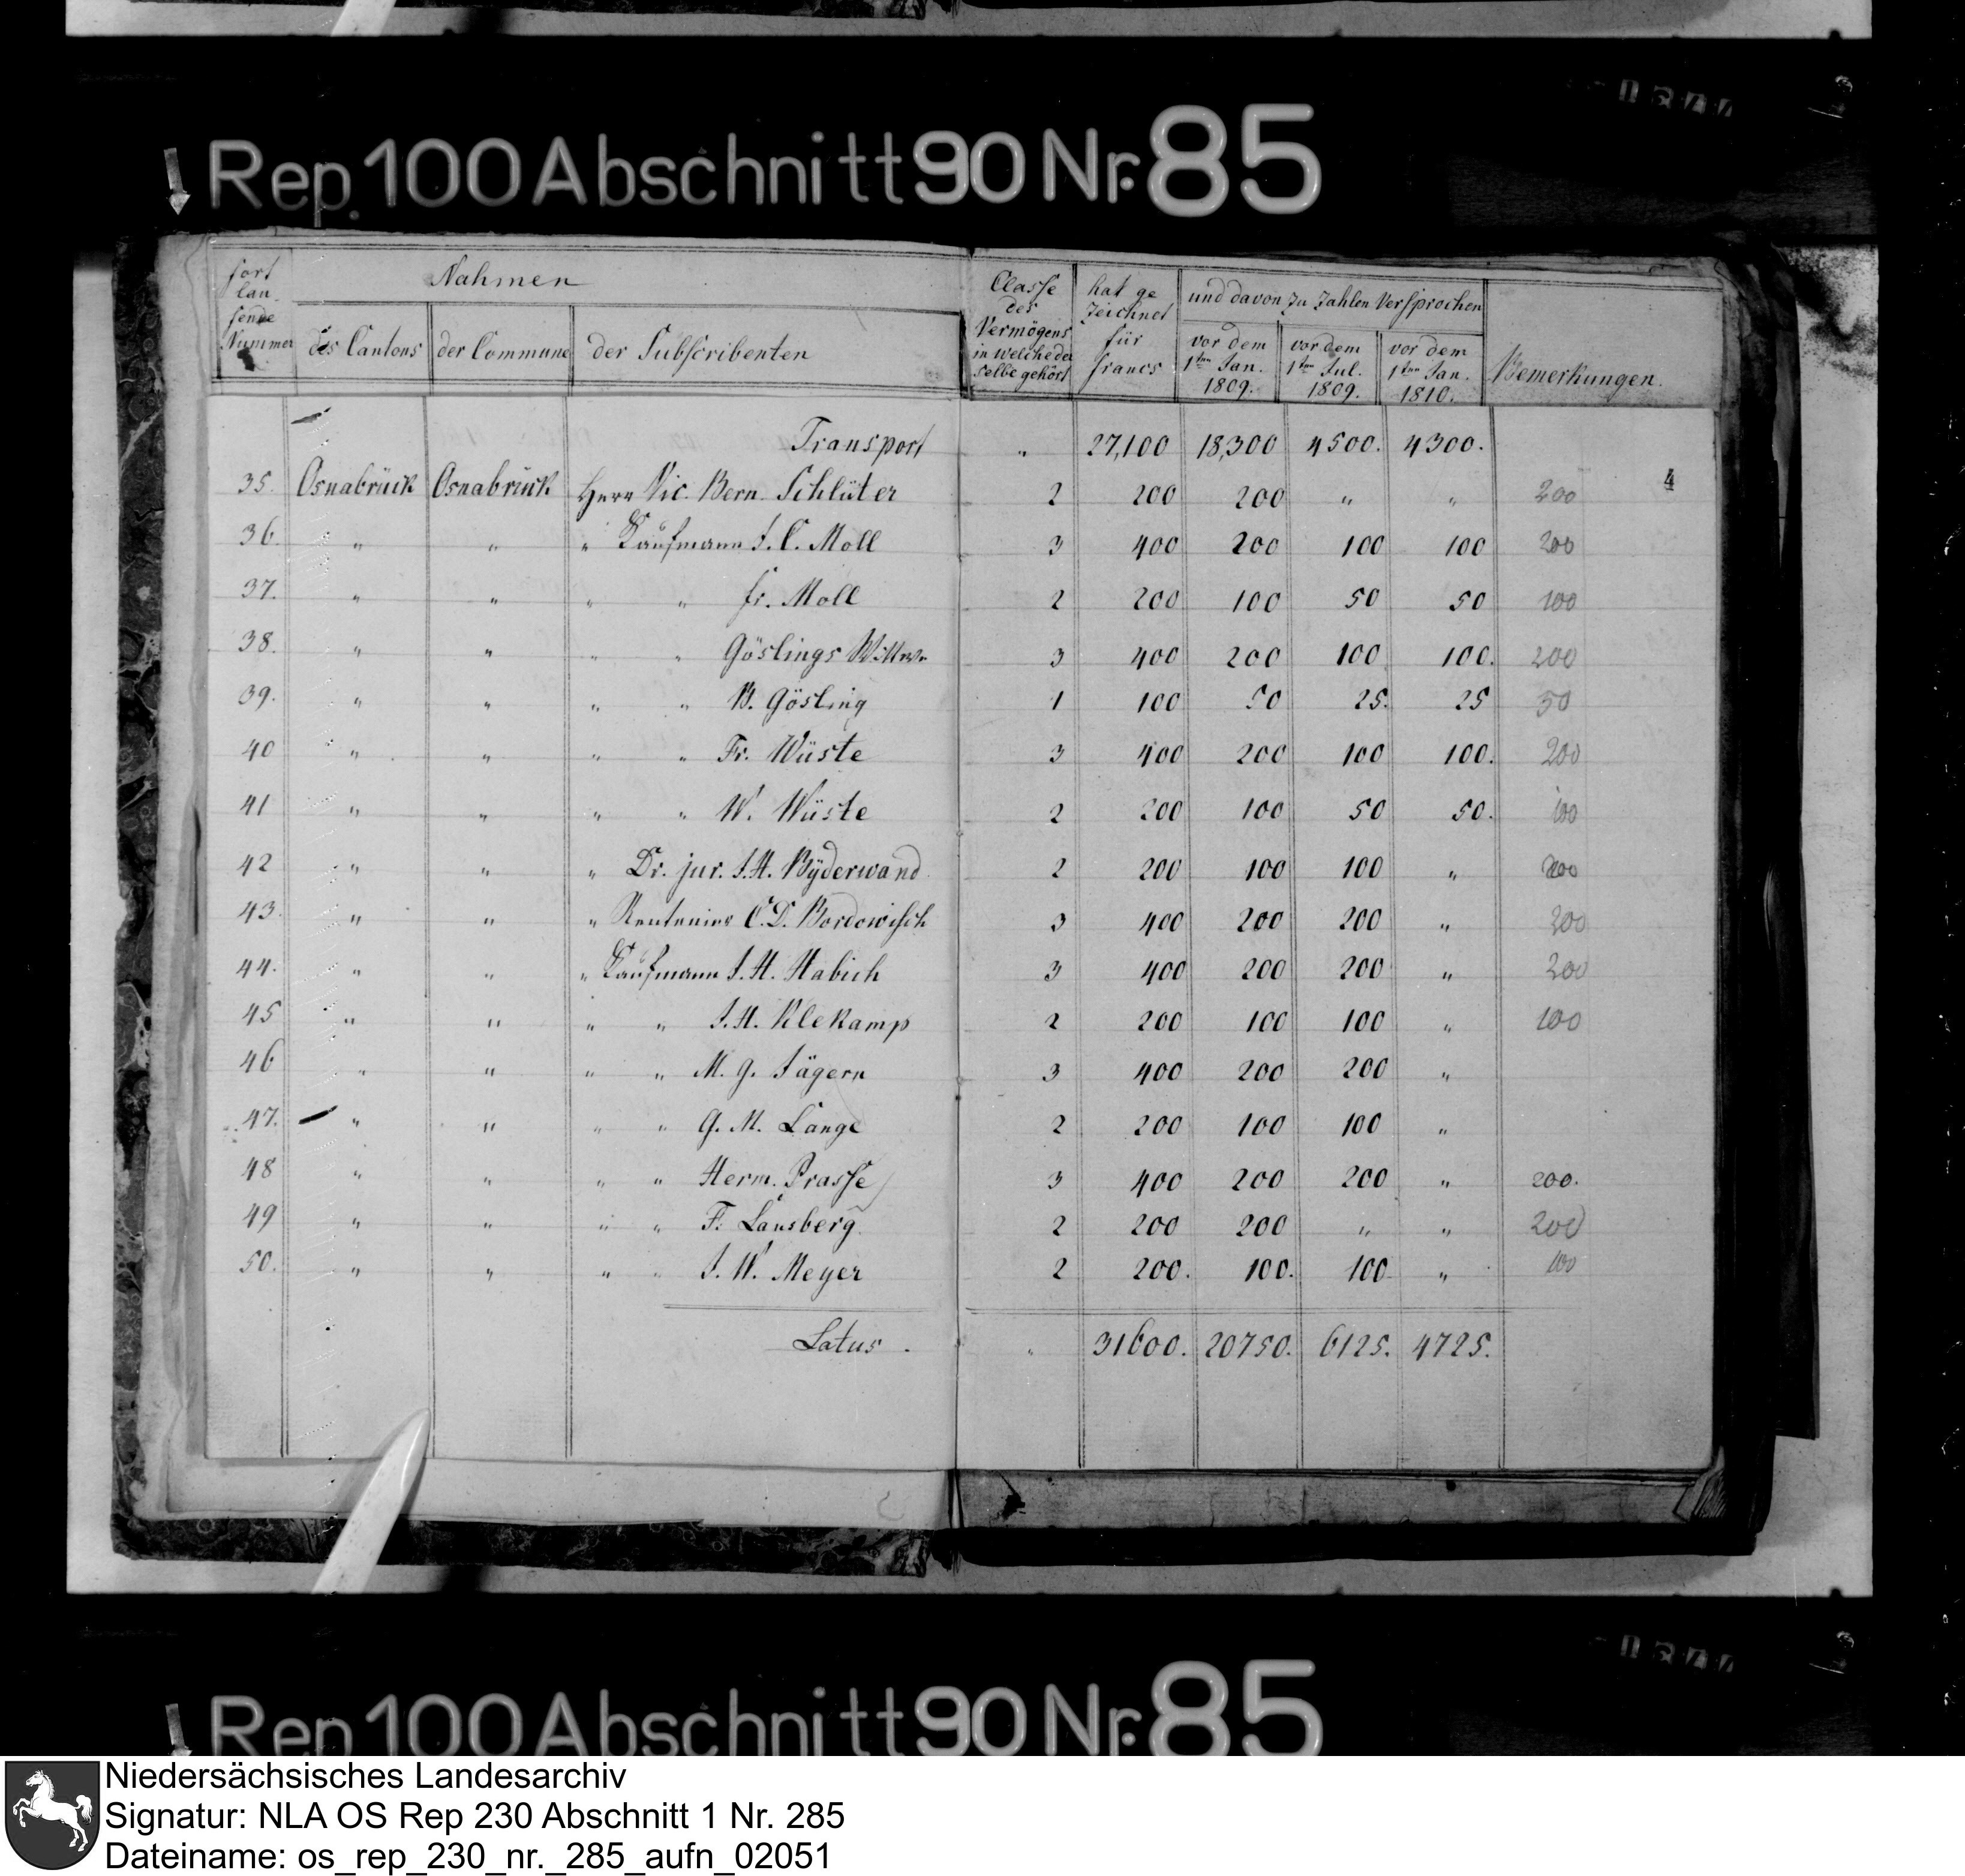 Rep. 100 Abschnitt 90 Nr. 85
fort lau- fende Nummer
Nahmen
des Cantons
der Commune
der Subscribenten
Classe des Vermögens in welche der selbe gehört
hat ge zeichnet für francs
und davon zu zahlen versprochen
vor dem 1ten Jan. 1809.
vor dem 1ten Jul. 1809.
vor dem 1ten Jan. 1810.
Bemerkungen.
Transport " 27,100 18,300 4500. 4300.
4
35. Osnabrück Osnabrück Herr Vic. Bern. Schlüter 2 200 200 " " 200
36. " " " Kaufmann J. C. Moll 3 400 200 100 100 200
37. " " " " fr. Moll 2 200 100 50 50 100
38. " " " " Göslings Wittwe 3 400 200 100 100. 200
39. " " " " B. Gösling 1 100 50 25. 25 50
40 " " " " Fr. Wüste 3 400 200 100 100. 200
41 " " " " W. Wüste 2 200 100 50 50. 100
42 " " " Dr. jur. J. H. Byderwand 2 200 100 100 " 200
43. " " " C. D. Bordewisch 3 400 200 200 " 200
44. " " " Kaufmann J. H. Habich 3 400 200 200 " 200
45 " " " " J. H. Klekamp 2 200 100 100 " 100
46 " " " " M. G. Jägern 3 400 200 200 "
47. " " " " G. M. Lange 2 200 100 100 "
48 " " " " Herm. Prasse 3 400 200 200 " 200.
49 " " " " F. Lansberg 2 200 200 " " 200
50. " " " " J. W. Meyer 2 200. 100. 100 " 100
Latus. " 31600. 20750. 6125. 4725.
Rep 100 Abschnitt 90 Nr. 85
Niedersächsisches Landesarchiv
Signatur: NLA OS Rep 230 Abschnitt 1 Nr. 285
Dateiname: os_rep_230_nr._285_aufn_02051